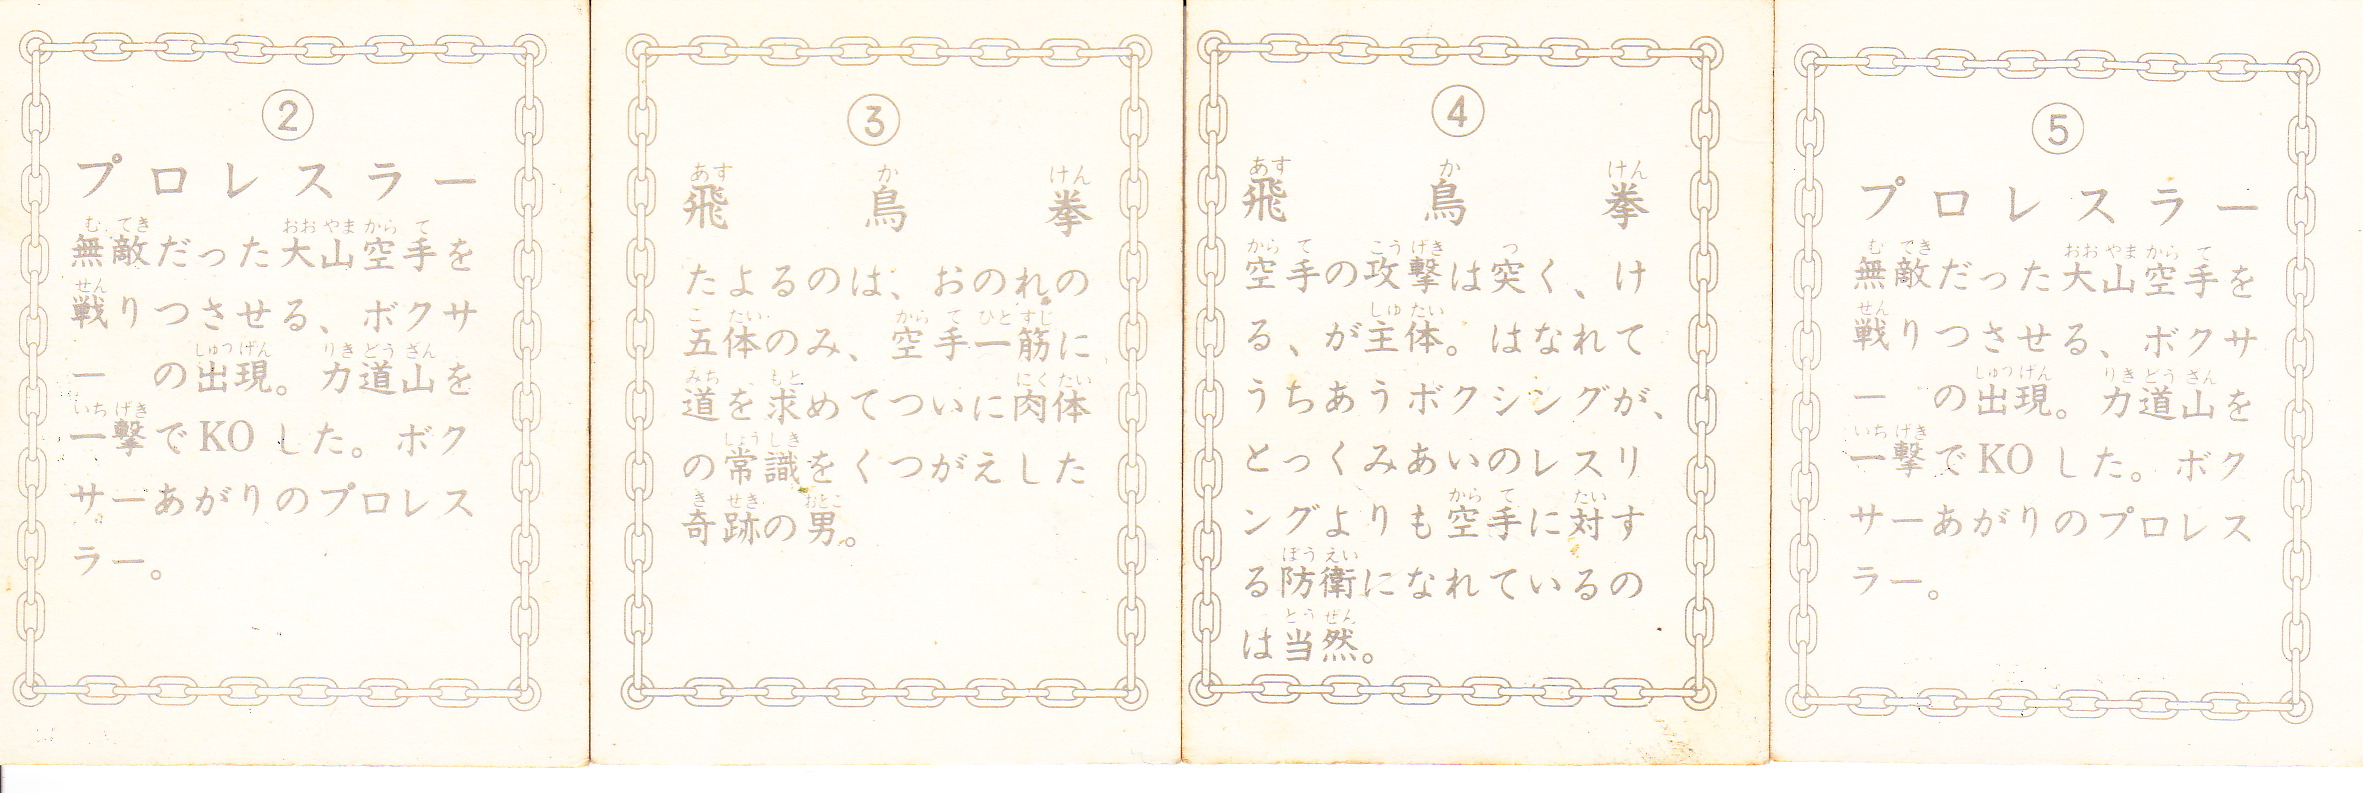 ②
プロレスラー
無敵だった大山空手を
戦りつさせる、ボクサ
ー　の出現。力道山を
一撃でKOした。ボク
サーあがりのプロレス
ラー。
③
飛鳥拳
たよるのは、おのれの
五体のみ、空手一筋に
道を求めてついに肉体
の常識をくつがえした
奇跡の男。
④
飛鳥拳
空手の攻撃は突く、け
る、が主体。はなれて
うちあうボクシングが、
とっくみあいのレスリ
ングよりも空手に対す
る防衛になれているの
は当然。
⑤
プロレスラー
無敵だった大山空手を
戦りつさせる、ボクサ
ー　の出現。力道山を
一撃でKOした。ボク
サーあがりのプロレス
ラー。